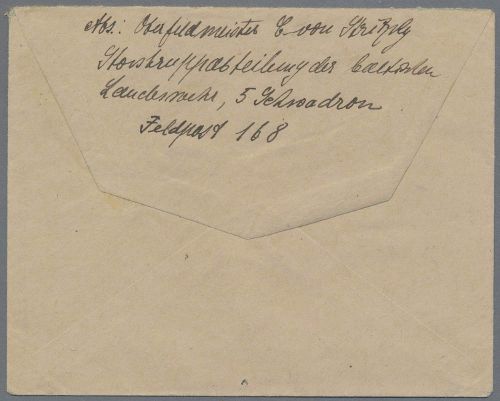 Abs: Oberfeldmeister C von Stritzky
Stosstruppabteilung der Baltischen
Landeswehr, 5 Schwadron
Feldpost 168